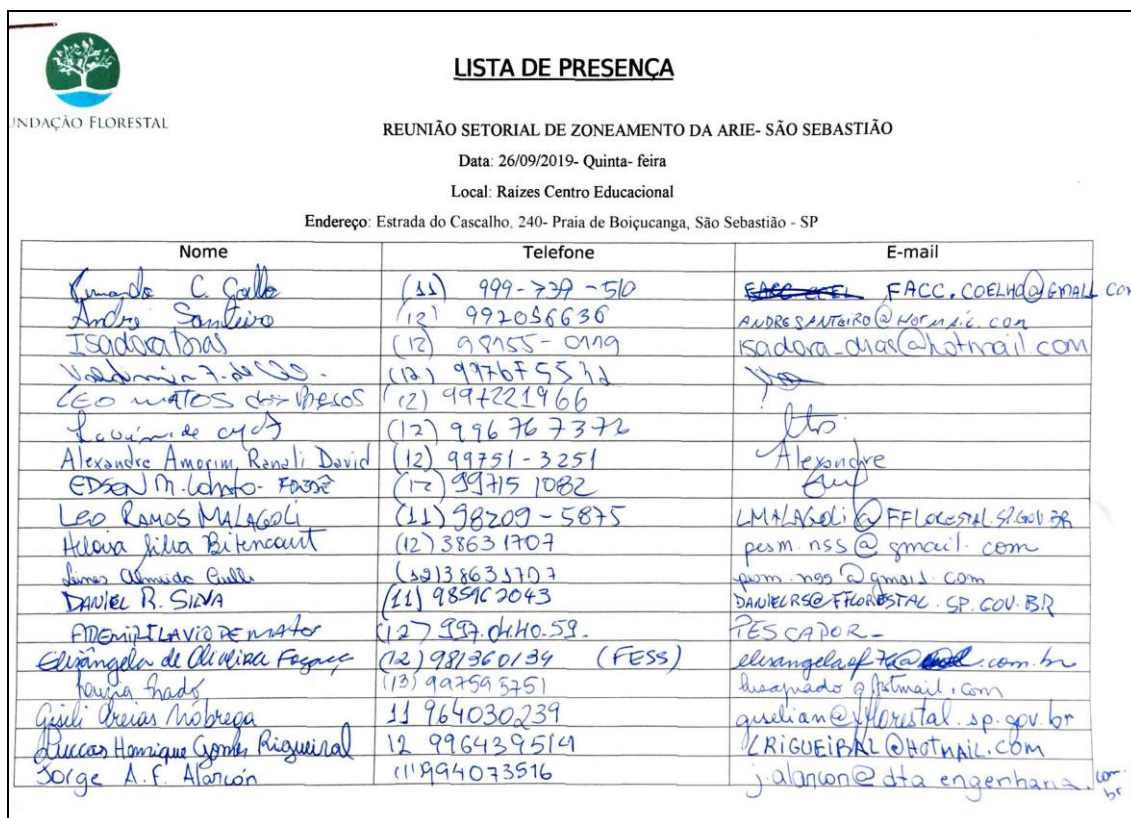 UNDAÇÃO FLORESTAL
LISTA DE PRESENÇA
REUNIÃO SETORIAL DE ZONEAMENTO DA ARIE- SÃO SEBASTIÃO
Data: 26/09/2019- Quinta- feira
Local: Raízes Centro Educacional
Endereço: Estrada do Cascalho, 240- Praia de Boiçucanga, São Sebastião - SP
Nome Telefone E-mail
C. (11) 999-739-510 FACC.COELHO@GMAIL.COM
Andre Santeiro (12) 992056636 ANDRESANTEIRO@HOTMAIL.COM
Isadora Dias (12) 98155-0119 isadora-dias@hotmail.com
(12)
LEO MATOS dos (12) 997221966
(12) 996767372
Alexandre Amorim Ranali David (12) 99751-3251 Alexandre
EDSON M. (12) 99715 1082
LEO RAMOS MALAGOLI (11) 98209-5875 LMALAGOLI@FFLORESTAL.SP.GOV.BR
Heloisa Silva Bitencourt (12) 38631707 pesm.nss@gmail.com
Almeida (12) 38631707 pesm.nss@gmail.com
DANIEL R. SILVA (11) 985962043 DANIELRS@FFLORESTAL.SP.GOV.BR
(12) 997.04.40.59. PESCADOR-
Elisângela de Oliveira (12) 981360139 (FESS)
(13) 997595751
Giseli Areias Nóbrega 11 964030239 giselian@fflorestal.sp.gov.br
Luccas Henrique Gomes Rigueiral 12 LRIGUEIRAL@HOTMAIL.COM
Jorge A.F. Alarcón (11) 994073516 j.alarcon@dtaengenharia.com.br